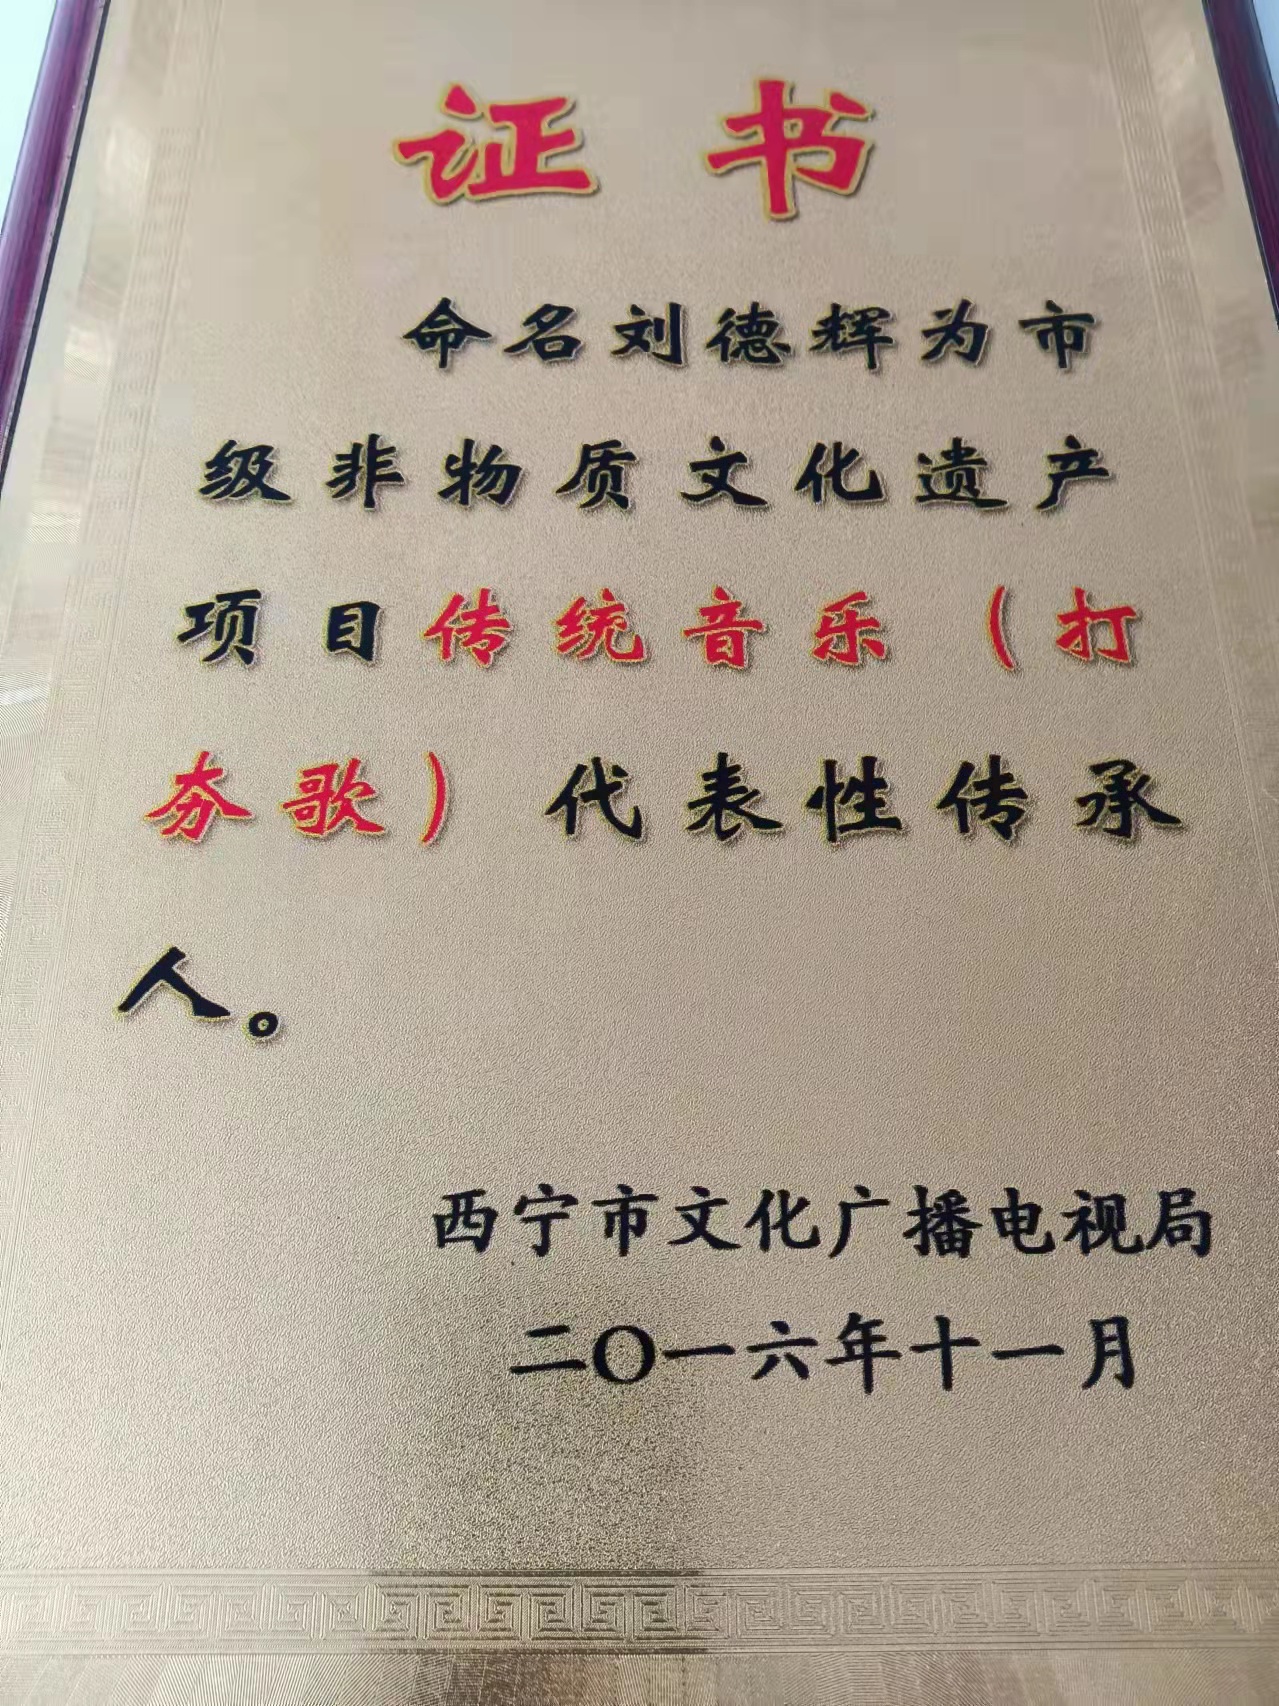 证书
命名刘德辉为市
级非物质文化遗产
项目传统音乐（打
夯歌）代表性传承
人。
西宁市文化广播电视局
二〇一六年十一月